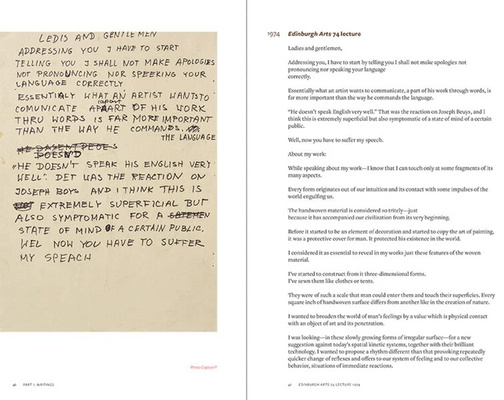 LEDIS AND GENTLEMEN
ADDRESSING YOU J HAVE TO START
TELLING YOU J SHALL NOT MAKE APOLOGIES
NOT PRONOUNCING NOR SPEEKING YOUR
LANGUAGE CORRECTLY
ESSENTIALY WHAT AN ARTIST WANTS TO
COMUNICATE APART OF HIS WORK
THRU WORDS IS FAR MORE IMPORTANT
THAN THE WAY HE COMMANDS
THE LANGUAGE
DOESND
"HE DOESN'T SPEAK HIS ENGLISH VERY
WELL". DET WAS THE REACTION ON
JOSEPH BOYS AND I THINK THIS IS
EXTREMELY SUPERFICIAL BUT
ALSO SYMPTOMATIC FOR A
STATE OF MIND OF A CERTAIN PUBLIC.
WEL NOW YOU HAVE TO SUFFER
MY SPEACH
Photo Caption?
46 PART I: WRITINGS
1974 Edinburgh Arts 74 lecture
Ladies and gentlemen,
Addressing you, I have to start by telling you I shall not make apologies not
pronouncing nor speaking your language
correctly.
Essentially what an artist wants to communicate, a part of his work through words, is
far more important than the way he commands the language.
"He doesn't speak English very well." That was the reaction on Joseph Beuys, and I
think this is extremely superficial but also symptomatic of a state of mind of a certain
public.
Well, now you have to suffer my speech.
About my work:
While speaking about my work—I know that I can touch only at some fragments of its
many aspects.
Every form originates out of our intuition and its contact with some impulses of the
world engulfing us.
The handwoven material is considered so tritely—just
because it has accompanied our civilization from its very beginning.
Before it started to be an element of decoration and started to copy the art of painting,
it was a protective cover for man. It protected his existence in the world.
I considered it as essential to reveal in my works just these features of the woven
material.
I've started to construct from it three-dimensional forms.
I've sewn them like clothes or tents.
They were of such a scale that man could enter them and touch their superficies. Every
square inch of handwoven surface differs from another like in the creation of nature.
I wanted to broaden the world of man's feelings by a value which is physical contact
with an object of art and its penetration.
I was looking—in these slowly growing forms of irregular surface—for a new
suggestion against today's spatial kinetic systems, together with their brilliant
technology. I wanted to propose a rhythm different than that provoking repeatedly
quicker change of reflexes and offers to our system of feeling and to our collective
behavior, situations of immediate reactions.
47 EDINBURGH ARTS 74 LECTURE 1974